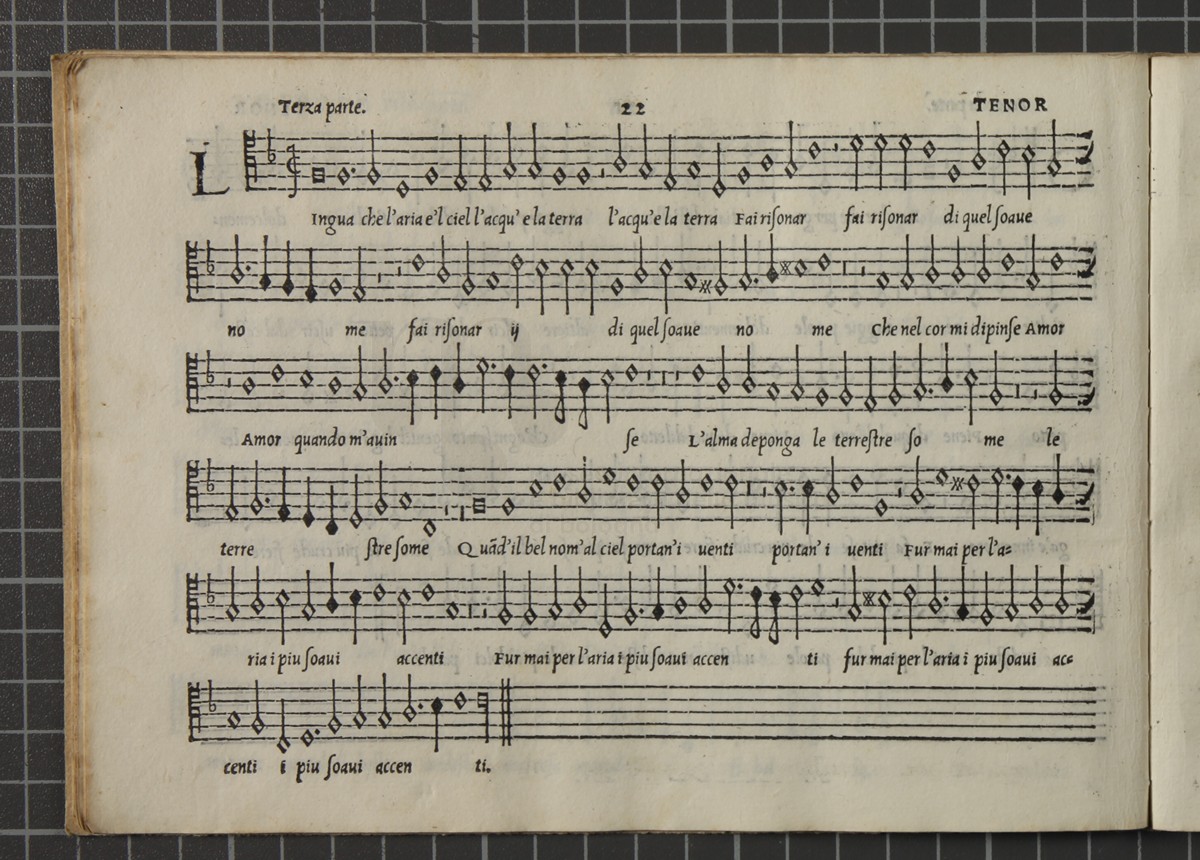 Terza parte. 22 TENOR
LIngua che l'aria e'l ciel l'acqu' e la terra l'acqu'e la terra Fai risonar fai risonar di quel soaue
no me fai risonar ij di quel soaue no me Che nel cor mi dipinse Amor
Amor quando m'auin se L'alma deponga le terrestre so me le
terre stre some Quãd'il bel nom'al ciel portan'i uenti portan' i uenti Fur mai per l'a=
ria i piu soaui accenti Fur mai per l'aria i piu soaui accen ti fur mai per l'aria i piu soaui ac=
centi i piu soaui accen ti.